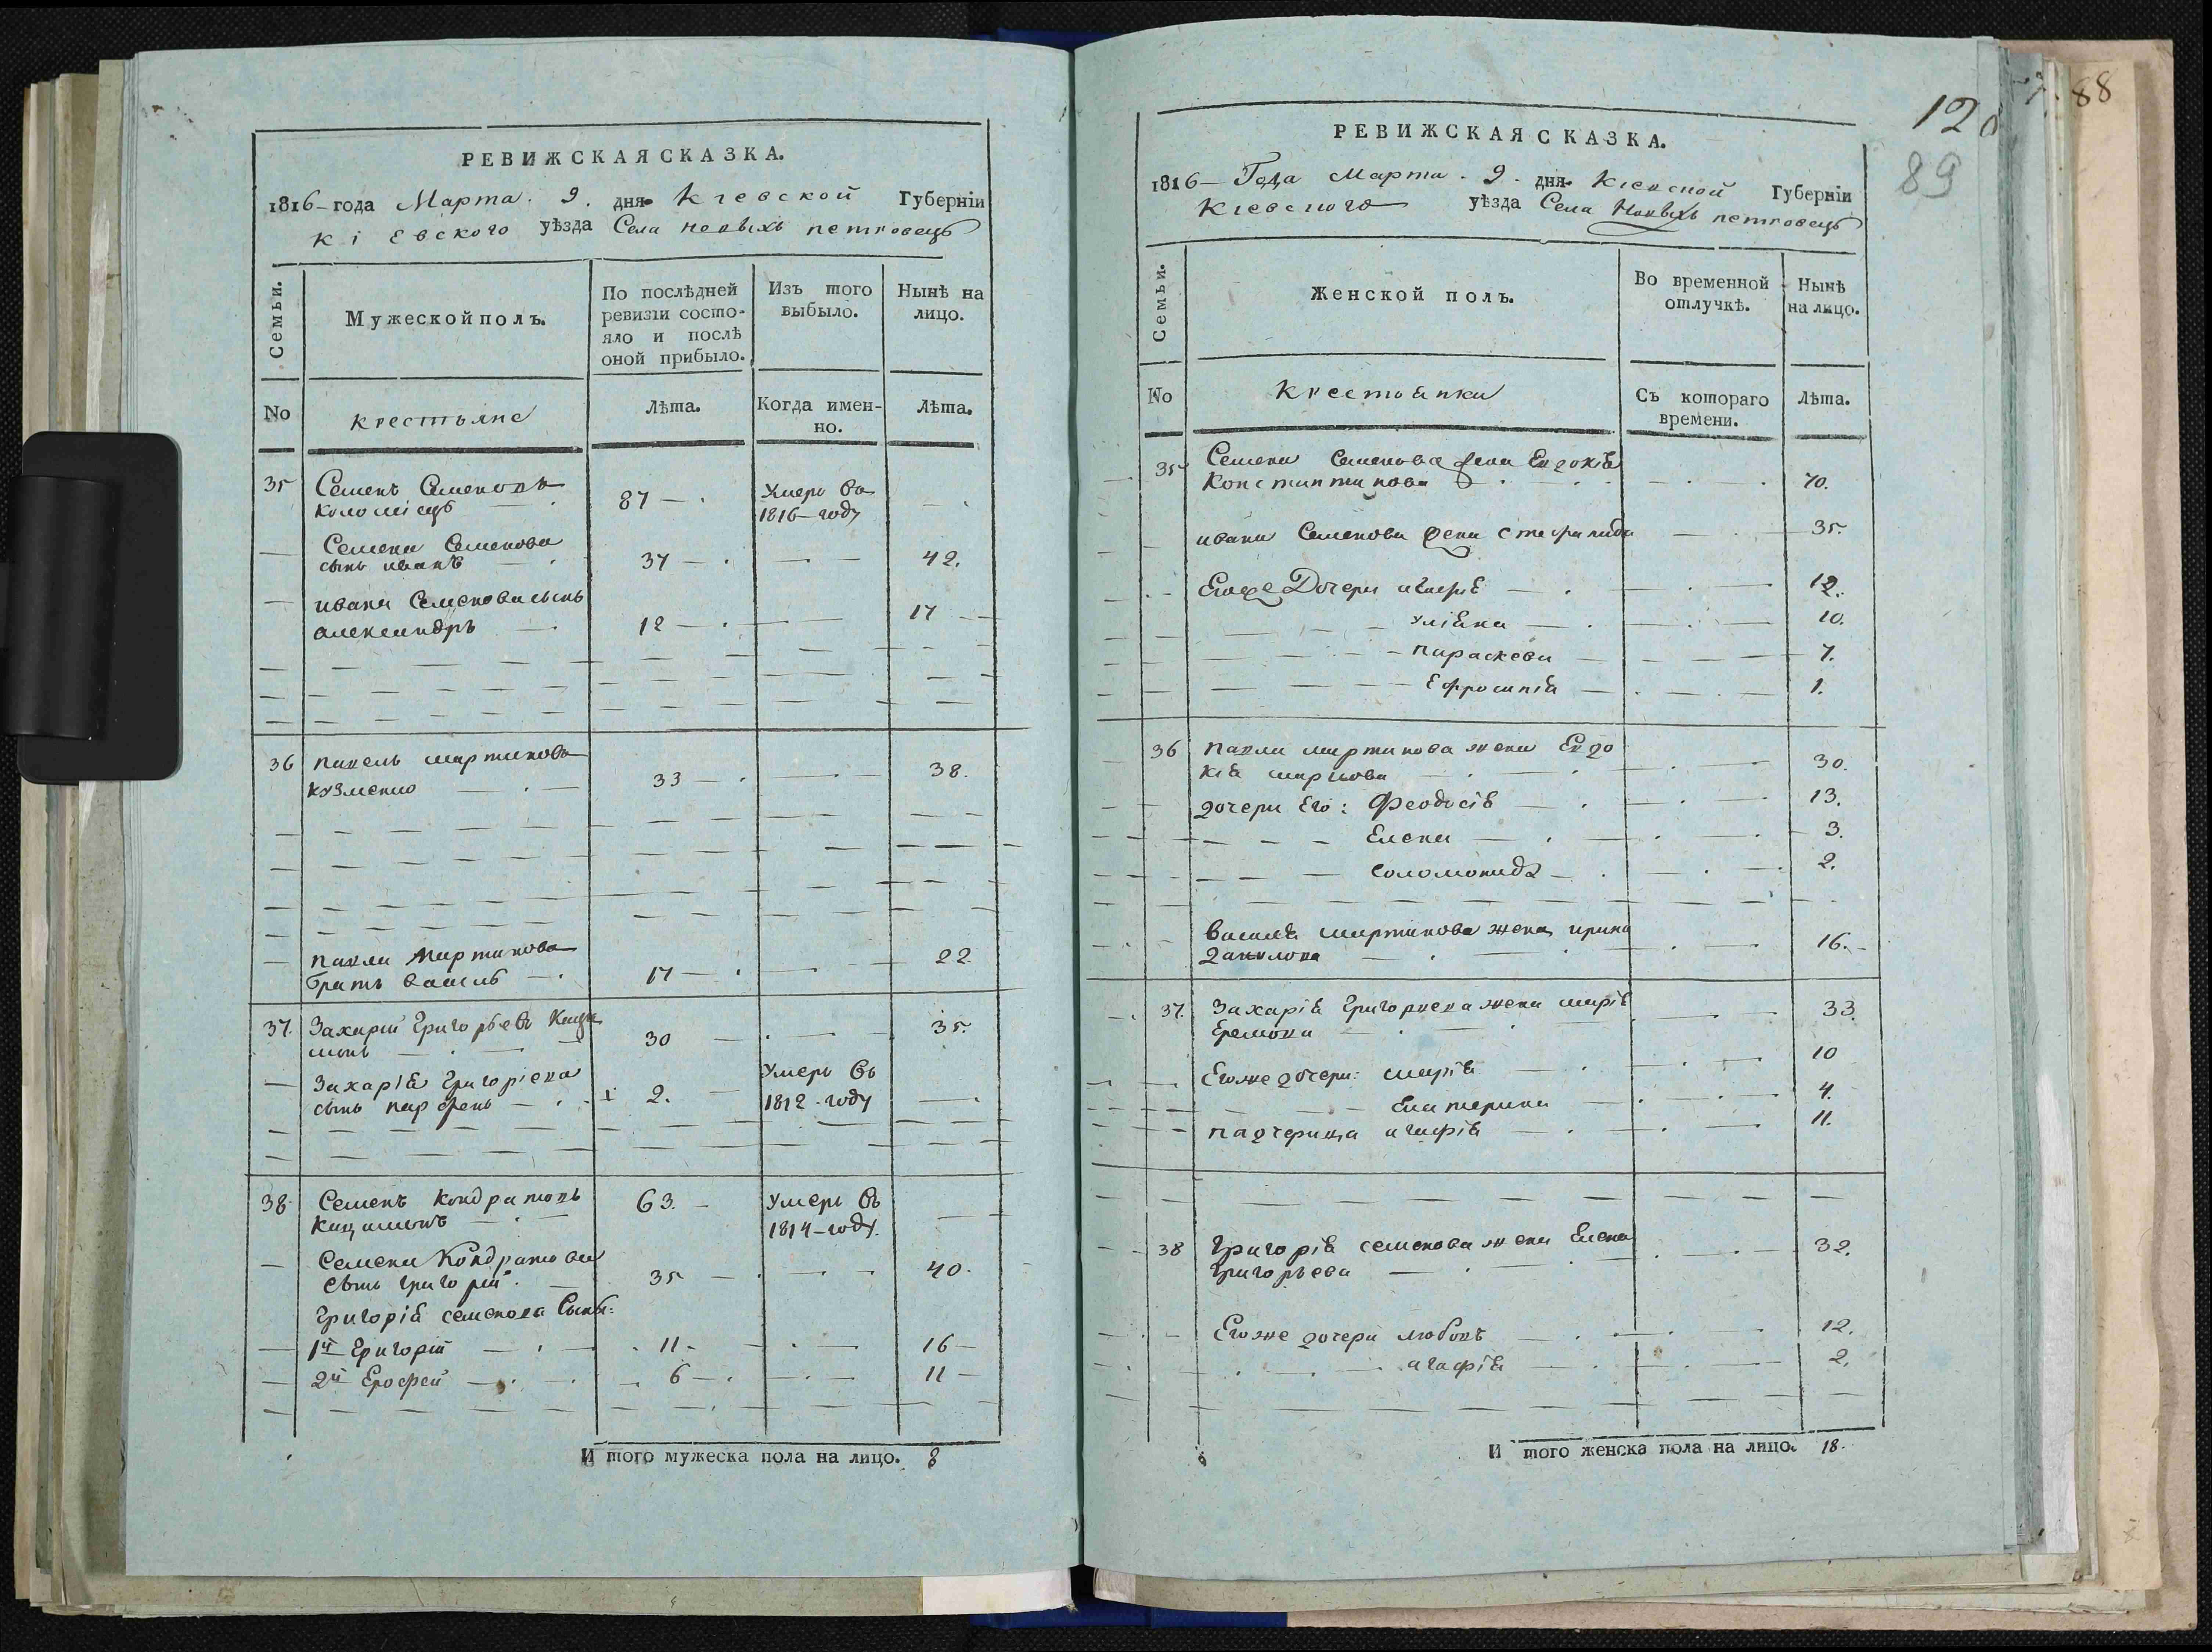 РЕВИЖСКАЯ СКАЗКА.
1816 года Марта 9. дня Кіевской Губерніи
Кіевского уѣзда Села новыхъ петровецъ
Семьи.
Мужеской полъ.
По послѣдней
ревизіи состо-
яло и послѣ
оной прибыло.
Изъ того
выбыло.
Нынѣ на
лицо.
No
крестьяне
Лѣта.
Когда имен-
но.
Лѣта.
35 Семенъ Семеновъ
коломіецъ 87 Умеръ въ
1816 году
Семена Семенова
сынъ иванъ 37 42.
ивана Семенова сынъ
александръ 12 17
36 павелъ мартиновъ
кузменко 33 38.
павла Мартинова
братъ василь 17 22
37. Захарій Григорьевъ
30 35.
Захарія Григоріева
сынъ парфенъ 2. Умеръ въ
1812 году
38 Семенъ Кондратовъ
63. Умеръ въ
1814 году.
Семена Кондратова
сынъ григорій 35 40.
Григорія семенова Сыны:
1й Григорій 11 16
2й Ерофей 6 11
И того мужеска пола на лицо. 8
12
88
89
РЕВИЖСКАЯ СКАЗКА.
1816 Года Марта 9. дня Кіевской Губерніи
Кіевского уѣзда Села Новыхъ петровецъ
Семьи.
Женской полъ.
Во временной
отлучкѣ.
Нынѣ
на лицо.
No
Крестьянки
Съ котораго
времени.
Лѣта.
35 Семена Семенова жена Евдокія
Константинова 70.
ивана Семенова жена стефанида 35.
Егоже Дочери агафія 12.
уліяна 10.
параскева 7.
Ефросинія 1.
36 павла мартинова жена Евдо
кія маркова 30.
дочери Его: Феодосія 13.
Елена 3.
соломонида 2.
василя мартинова жена ирина
данилова 16.
37. Захарія Григориева жена марія
Еремѣева 33.
Егоже дочери: марія 10
Екатерина 4.
падчерица агафія 11.
38 Григорія семенова жена Елена
Григорьева 32.
Егоже дочери любовь 12.
агафія 2.
И того женска пола на лицо. 18.